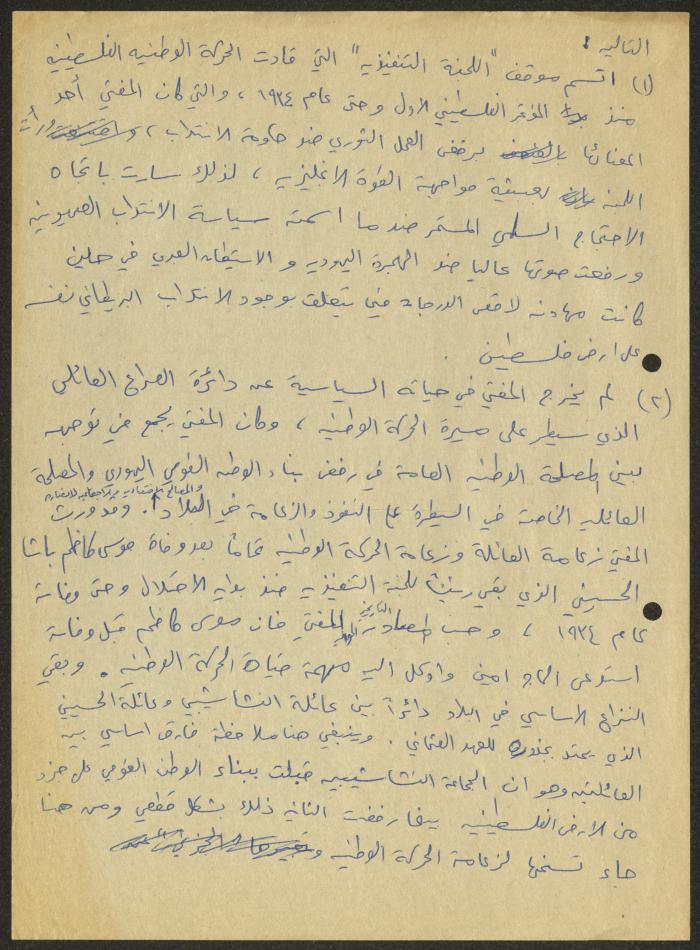 التالية :
(١) اتسم موقف "اللجنة التنفيذية" التي قادت الحركة الوطنية الفلسطينية
منذ المؤتمر الفلسطيني الأول وحتى عام ١٩٣٤ ، والتي كان المفتي أحد
أعضائها برفض العمل الثوري ضد حكومة الانتداب ، ورأت
اللجنة مواجهة القوة الانجليزية ، لذلك سارت باتجاه
الاحتجاج السلمي المستمر ضد ما اسمته سياسة الانتداب الصهيونية
ورفعت صوتها عاليا ضد الهجرة اليهودية و الاستيطان العبري في حين
كانت مهادنة لأقصى الدرجات فيما يتعلق بوجود الانتداب البريطاني نفسه
على ارض فلسطين .
(٢) لم يخرج المفتي في حياته السياسية عن دائرة الصراع العائلي
الذي سيطر على مسيرة الحركة الوطنية ، وكان المفتي يجمع في توجهه
بين المصلحة الوطنية العامة في رفض بناء الوطن القومي اليهودي والمصلحة
العائلية الخاصة في السيطرة على النفوذ والزعامة في البلاد . وقد ورث
المفتي زعامة العائلة وزعامة الحركة الوطنية تماماً بعد وفاة موسى كاظم باشا
الحسيني الذي بقي رئيسا للجنة التنفيذية منذ بداية الاحتلال وحتى وفاته
عام ١٩٣٤ ، وحسب المصادر التاريخية المفتي فان موسى كاظم قبل وفاته
استدعى الحاج امين واوكل اليه مهمة قيادة الحركة الوطنية . وبقي
النزاع الأساسي في البلاد دائراً بين عائلة النشاشيبي وعائلة الحسيني
الذي يمتد بجذوره للعهد العثماني . وينبغي هنا ملاحظة فارق اساسي بين
العائلتين وهو ان الجماعة النشاشيبية قبلت ببناء الوطن القومي على جزء
من الأرض الفلسطينية بينما رفضت الثانية ذلك بشكل قطعي ومن هنا
جاء تسنمها لزعامة الحركة الوطنية